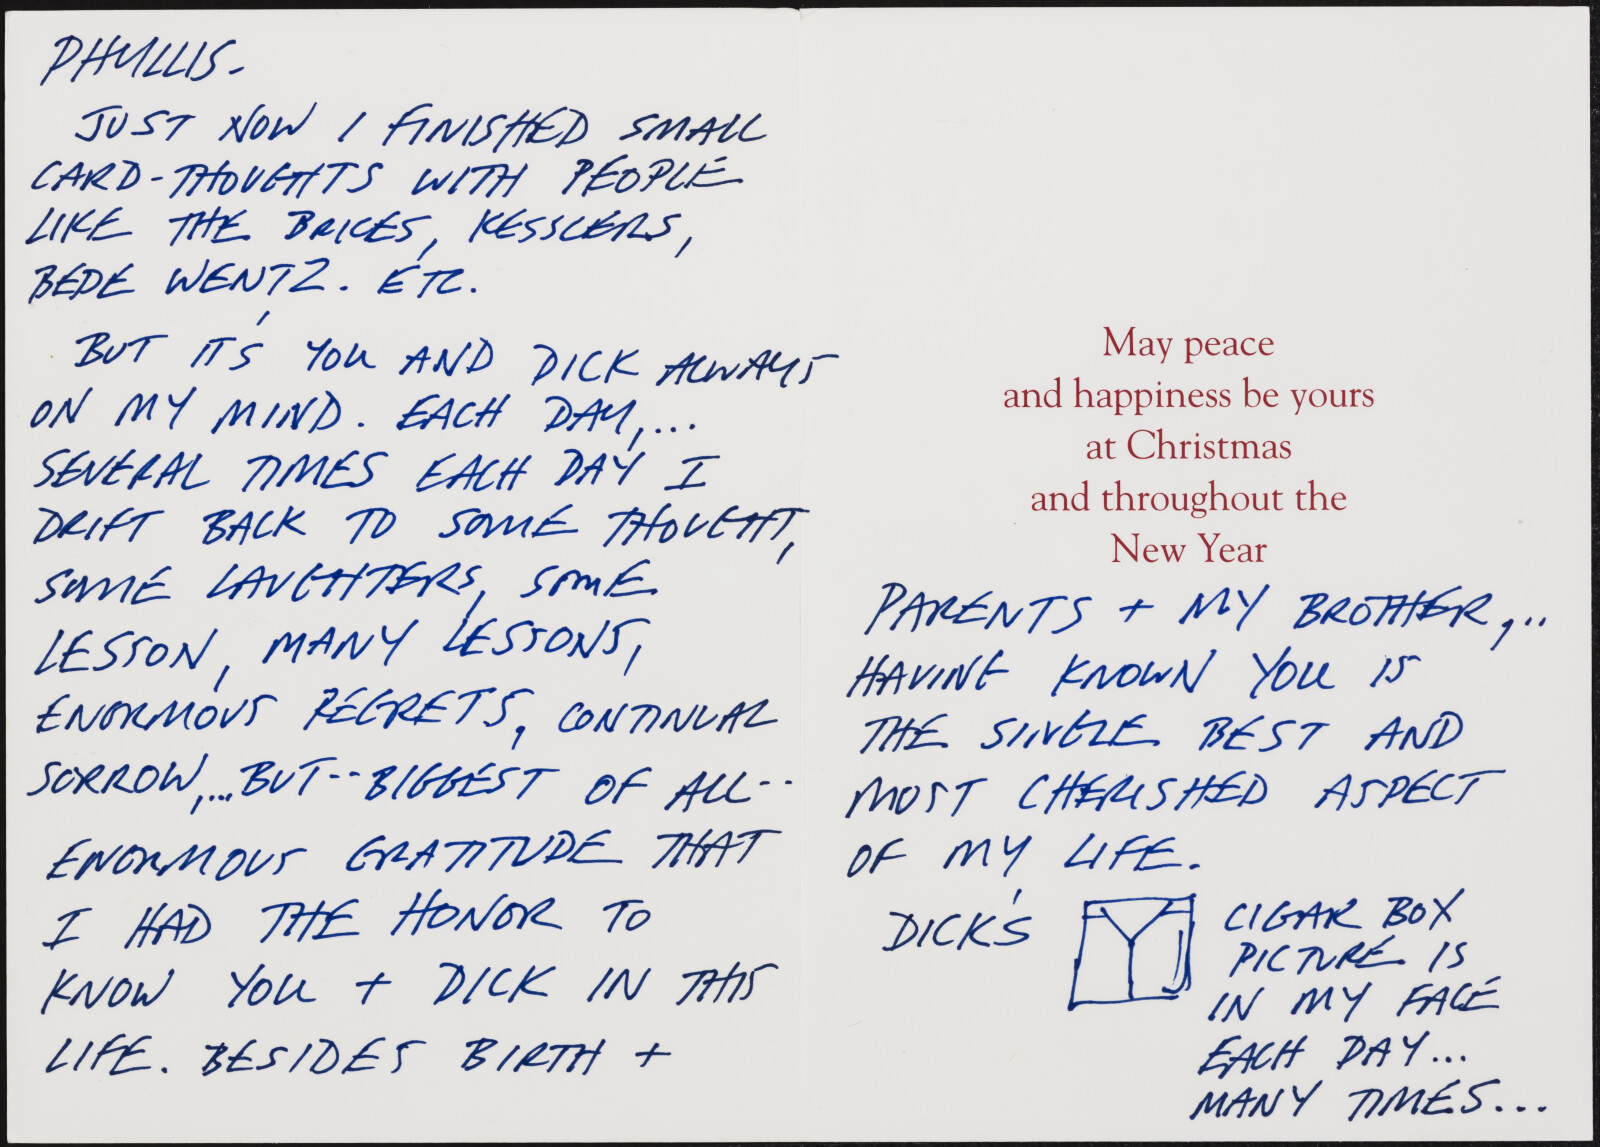 PHYLLIS-
JUST NOW I FINISHED SMALL
CARD-THOUGHTS WITH PEOPLE
LIKE THE BRICES, KESSLERS,
BEDE WENTZ. ETC.
BUT IT'S YOU AND DICK ALWAYS
ON MY MIND. EACH DAY,...
SEVERAL TIMES EACH DAY I
DRIFT BACK TO SOME THOUGHT,
SOME LAUGHTERS, SOME
LESSON, MANY LESSONS,
ENORMOUS REGRETS, CONTINUAL
SORROW,...BUT--BIGGEST OF ALL--
ENORMOUS GRATITUDE THAT
I HAD THE HONOR TO
KNOW YOU + DICK IN THIS
LIFE. BESIDES BIRTH +
May peace
and happiness be yours
at Christmas
and throughout the
New Year
PARENTS + MY BROTHER,..
HAVING KNOWN YOU IS
THE SINGLE BEST AND
MOST CHERISHED ASPECT
OF MY LIFE.
DICK'S CIGAR BOX
PICTURE IS
IN MY FACE
EACH DAY...
MANY TIMES...